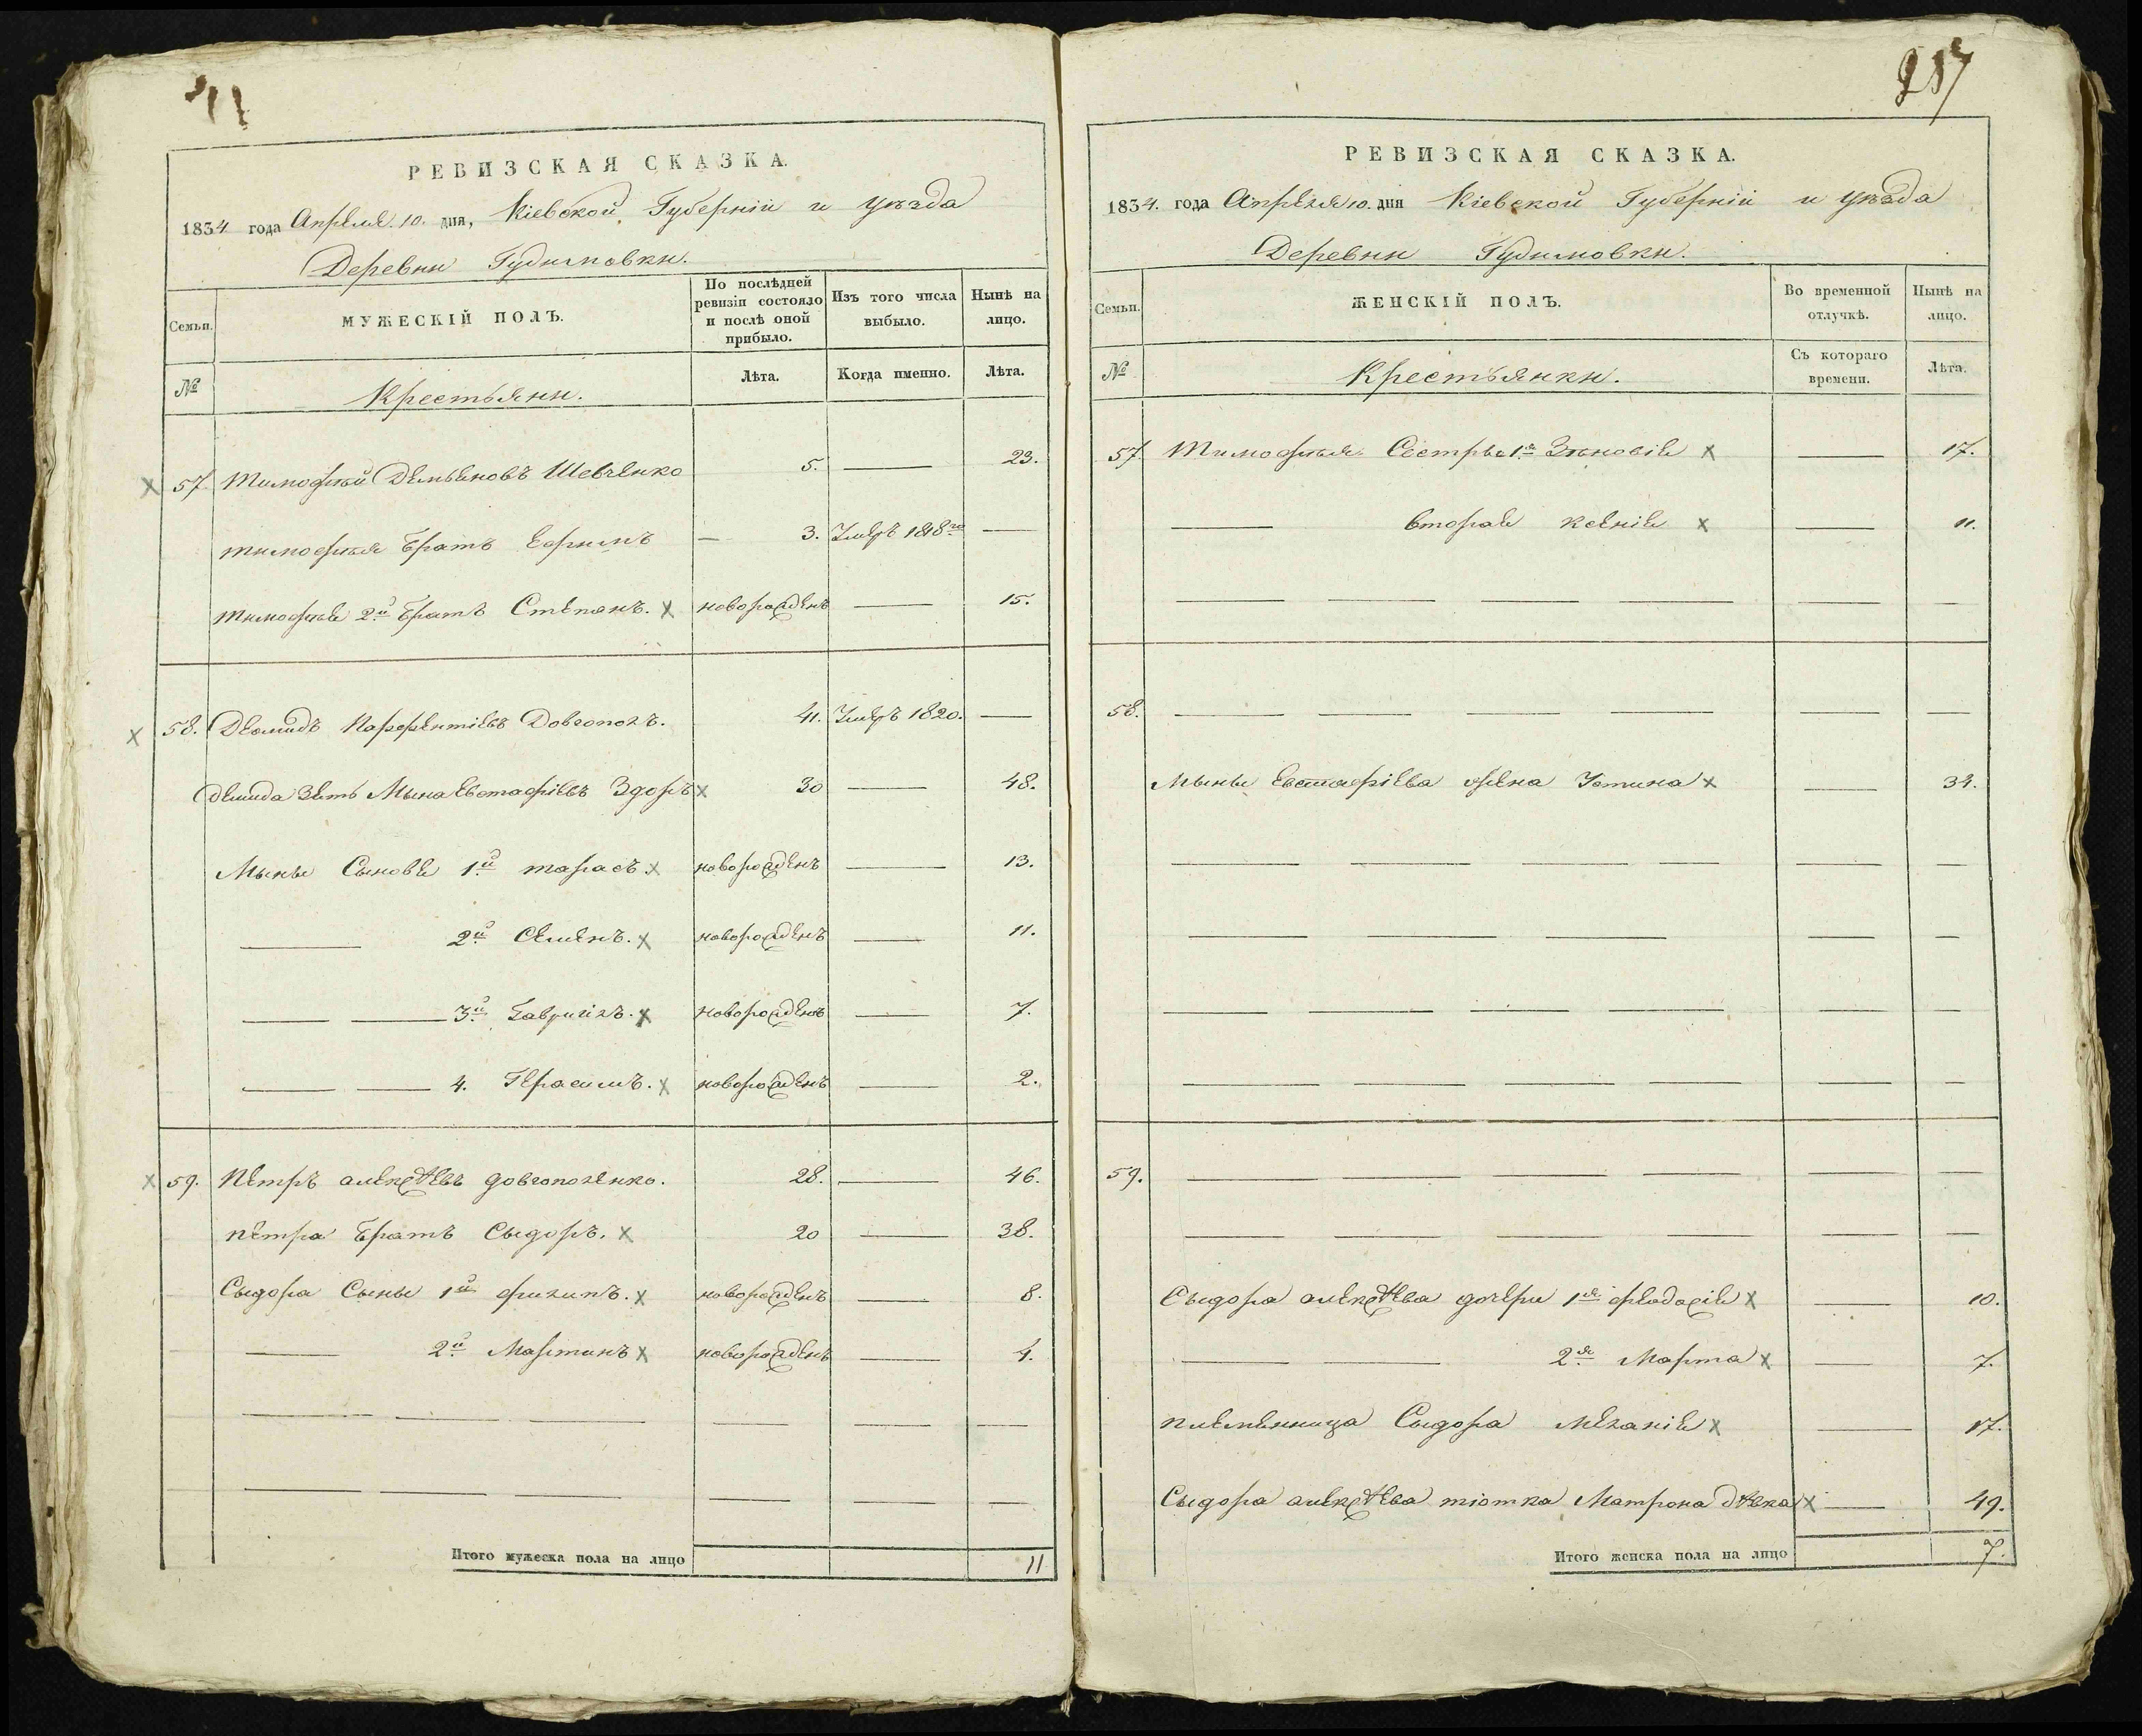 РЕВИЗСКАЯ СКАЗКА.
1834 года Апреля 10. дня, Кіевской Губерніи и уѣзда
Деревни Гудимовки.
Семьи.
МУЖЕСКІЙ ПОЛЪ.
По послѣдней ревизіи состояло и послѣ оной прибыло.
Изъ того числа выбыло.
Нынѣ на лицо.
№
Крестьяни.
Лѣта.
Когда именно.
Лѣта.
57. Тимофѣй Демьяновъ Шевченко 5. — 23.
тимофѣя братъ Ефимъ — 3. Умеръ 1818го —
тимофѣя 2й братъ Степанъ. х новорожденъ — 15.
58. Деомидъ Парфентіевъ Довгополъ. 41. Умеръ 1820. —
демида зять Мына Евстафіевъ Здоръ х 30 — 48.
Мыны Сыновя 1й тарасъ х новорожденъ — 13.
— 2й Семенъ. х новорожденъ — 11.
— — 3й Гавриилъ. х новорожденъ — 7.
— — 4. Герасимъ. х новорожденъ — 2.
59. Петръ алексѣевъ довгополенко. 28. — 46.
петра братъ Сыдоръ. х 20 — 38.
Сыдора Сыны 1й филипъ. х новорожденъ — 8.
— 2й Мартинъ х новорожденъ — 4.
Итого мужеска пола на лицо 11
217
РЕВИЗСКАЯ СКАЗКА.
1834. года Апреля 10. дня Кіевской Губерніи и уѣзда
Деревни Гудимовки.
Семьи.
ЖЕНСКІЙ ПОЛЪ.
Во временной отлучкѣ.
Нынѣ на лицо.
№
Крестьянки.
Съ котораго времени.
Лѣта.
57. Тимофѣя Сестры 1я Зѣновія х — 17.
— вторая ксенія х — 11.
58.
Мыны Евстафіева жена Устина х — 34.
59.
Сыдора алексѣева дочери 1я феодосія х — 10.
— — 2я Марта х — 7.
племенница Сыдора меланія х — 17.
Сыдора алексѣева тіотка Матрона дѣвка х — 49.
Итого женска пола на лицо 7.